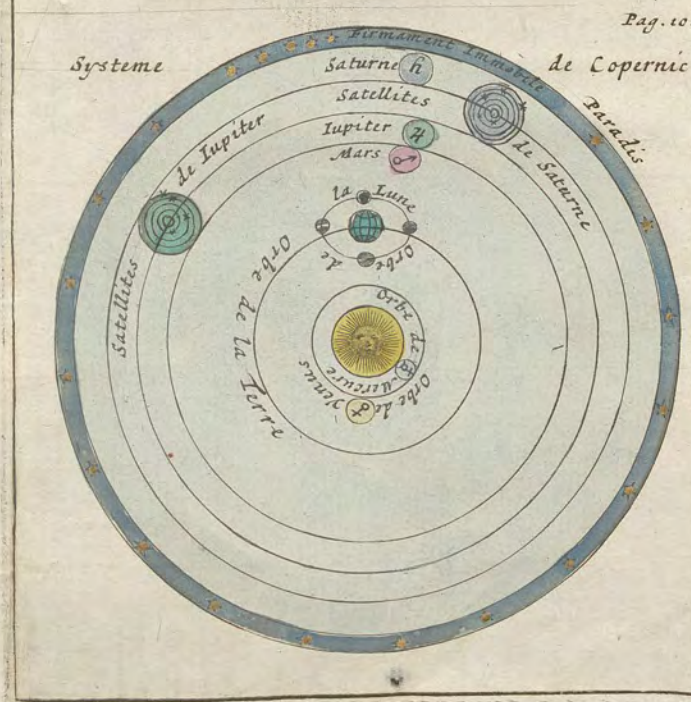 Pag. 10
Systeme
de Copernic
Firmament Immobile
Paradis
Saturne ♄
Satellites
de Saturne
Iupiter ♃
Mars ♂
Satellites
de Iupiter
Orbe de
la Lune
Orbe de la Terre
Orbe de Mercure ☿
Orbe de Venus ♀